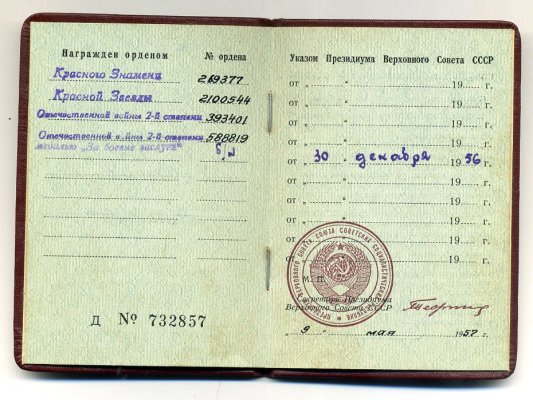 Награжден орденом № ордена
Красного Знамени 219377
Красной Звезды 2100544
Отечественной войны 2-й степени 393401
Отечественной войны 2-й степени 588819
медалью „За боевые заслуги“ б/н
Д № 732857
Указом Президиума Верховного Совета СССР
от „ “ 19 г.
от „ “ 19 г.
от „ “ 19 г.
от „ “ 19 г.
от „ 30 “ декабря 1956 г.
от „ “ 19 г.
от „ “ 19 г.
от „ “ 19 г.
от „ “ 19 г.
от „ “ 19 г.
М. П.
Секретарь Президиума
Верховного Совета СССР
„ 9 “ мая 1957 г.